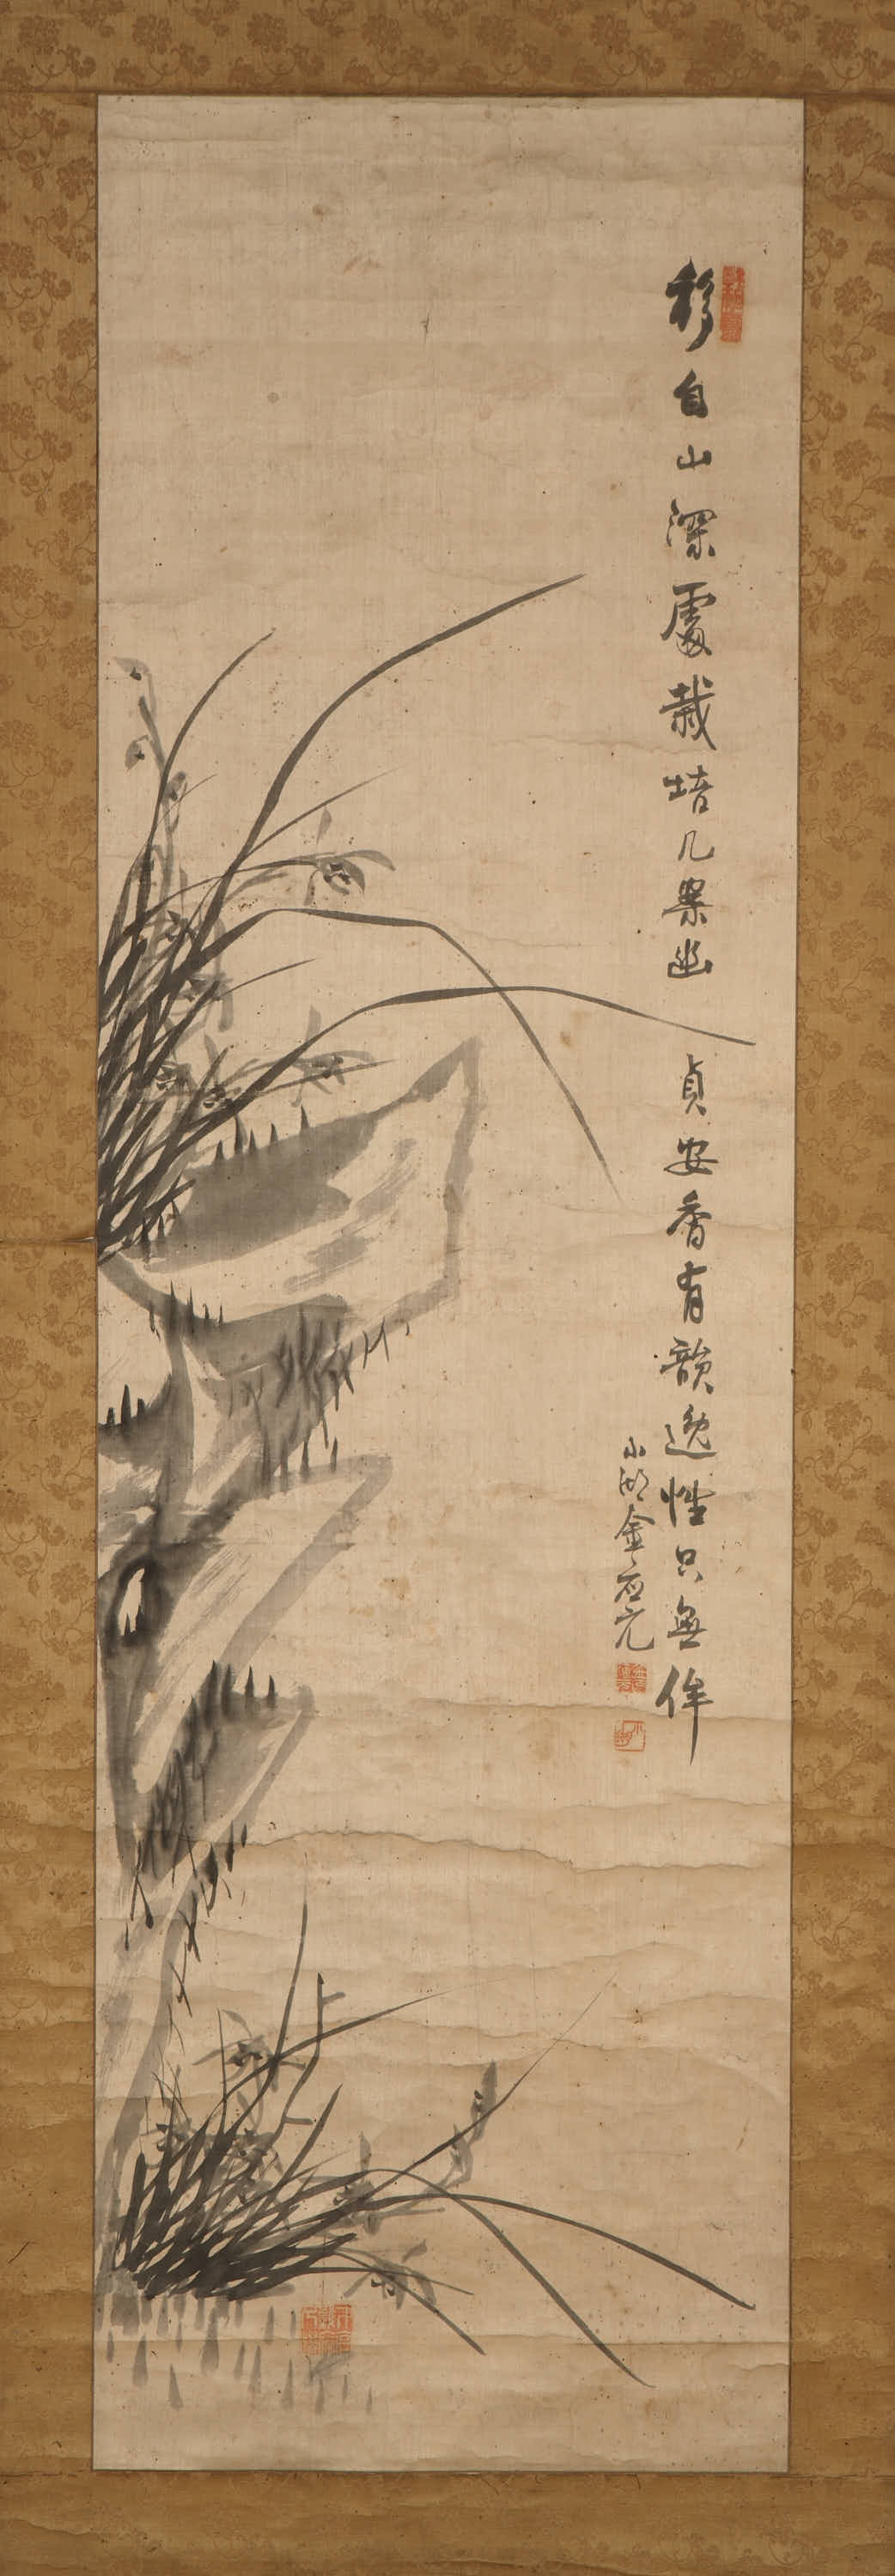 移自山深處栽培几案幽貞安香有韻逸性只無侔
小湖金應元